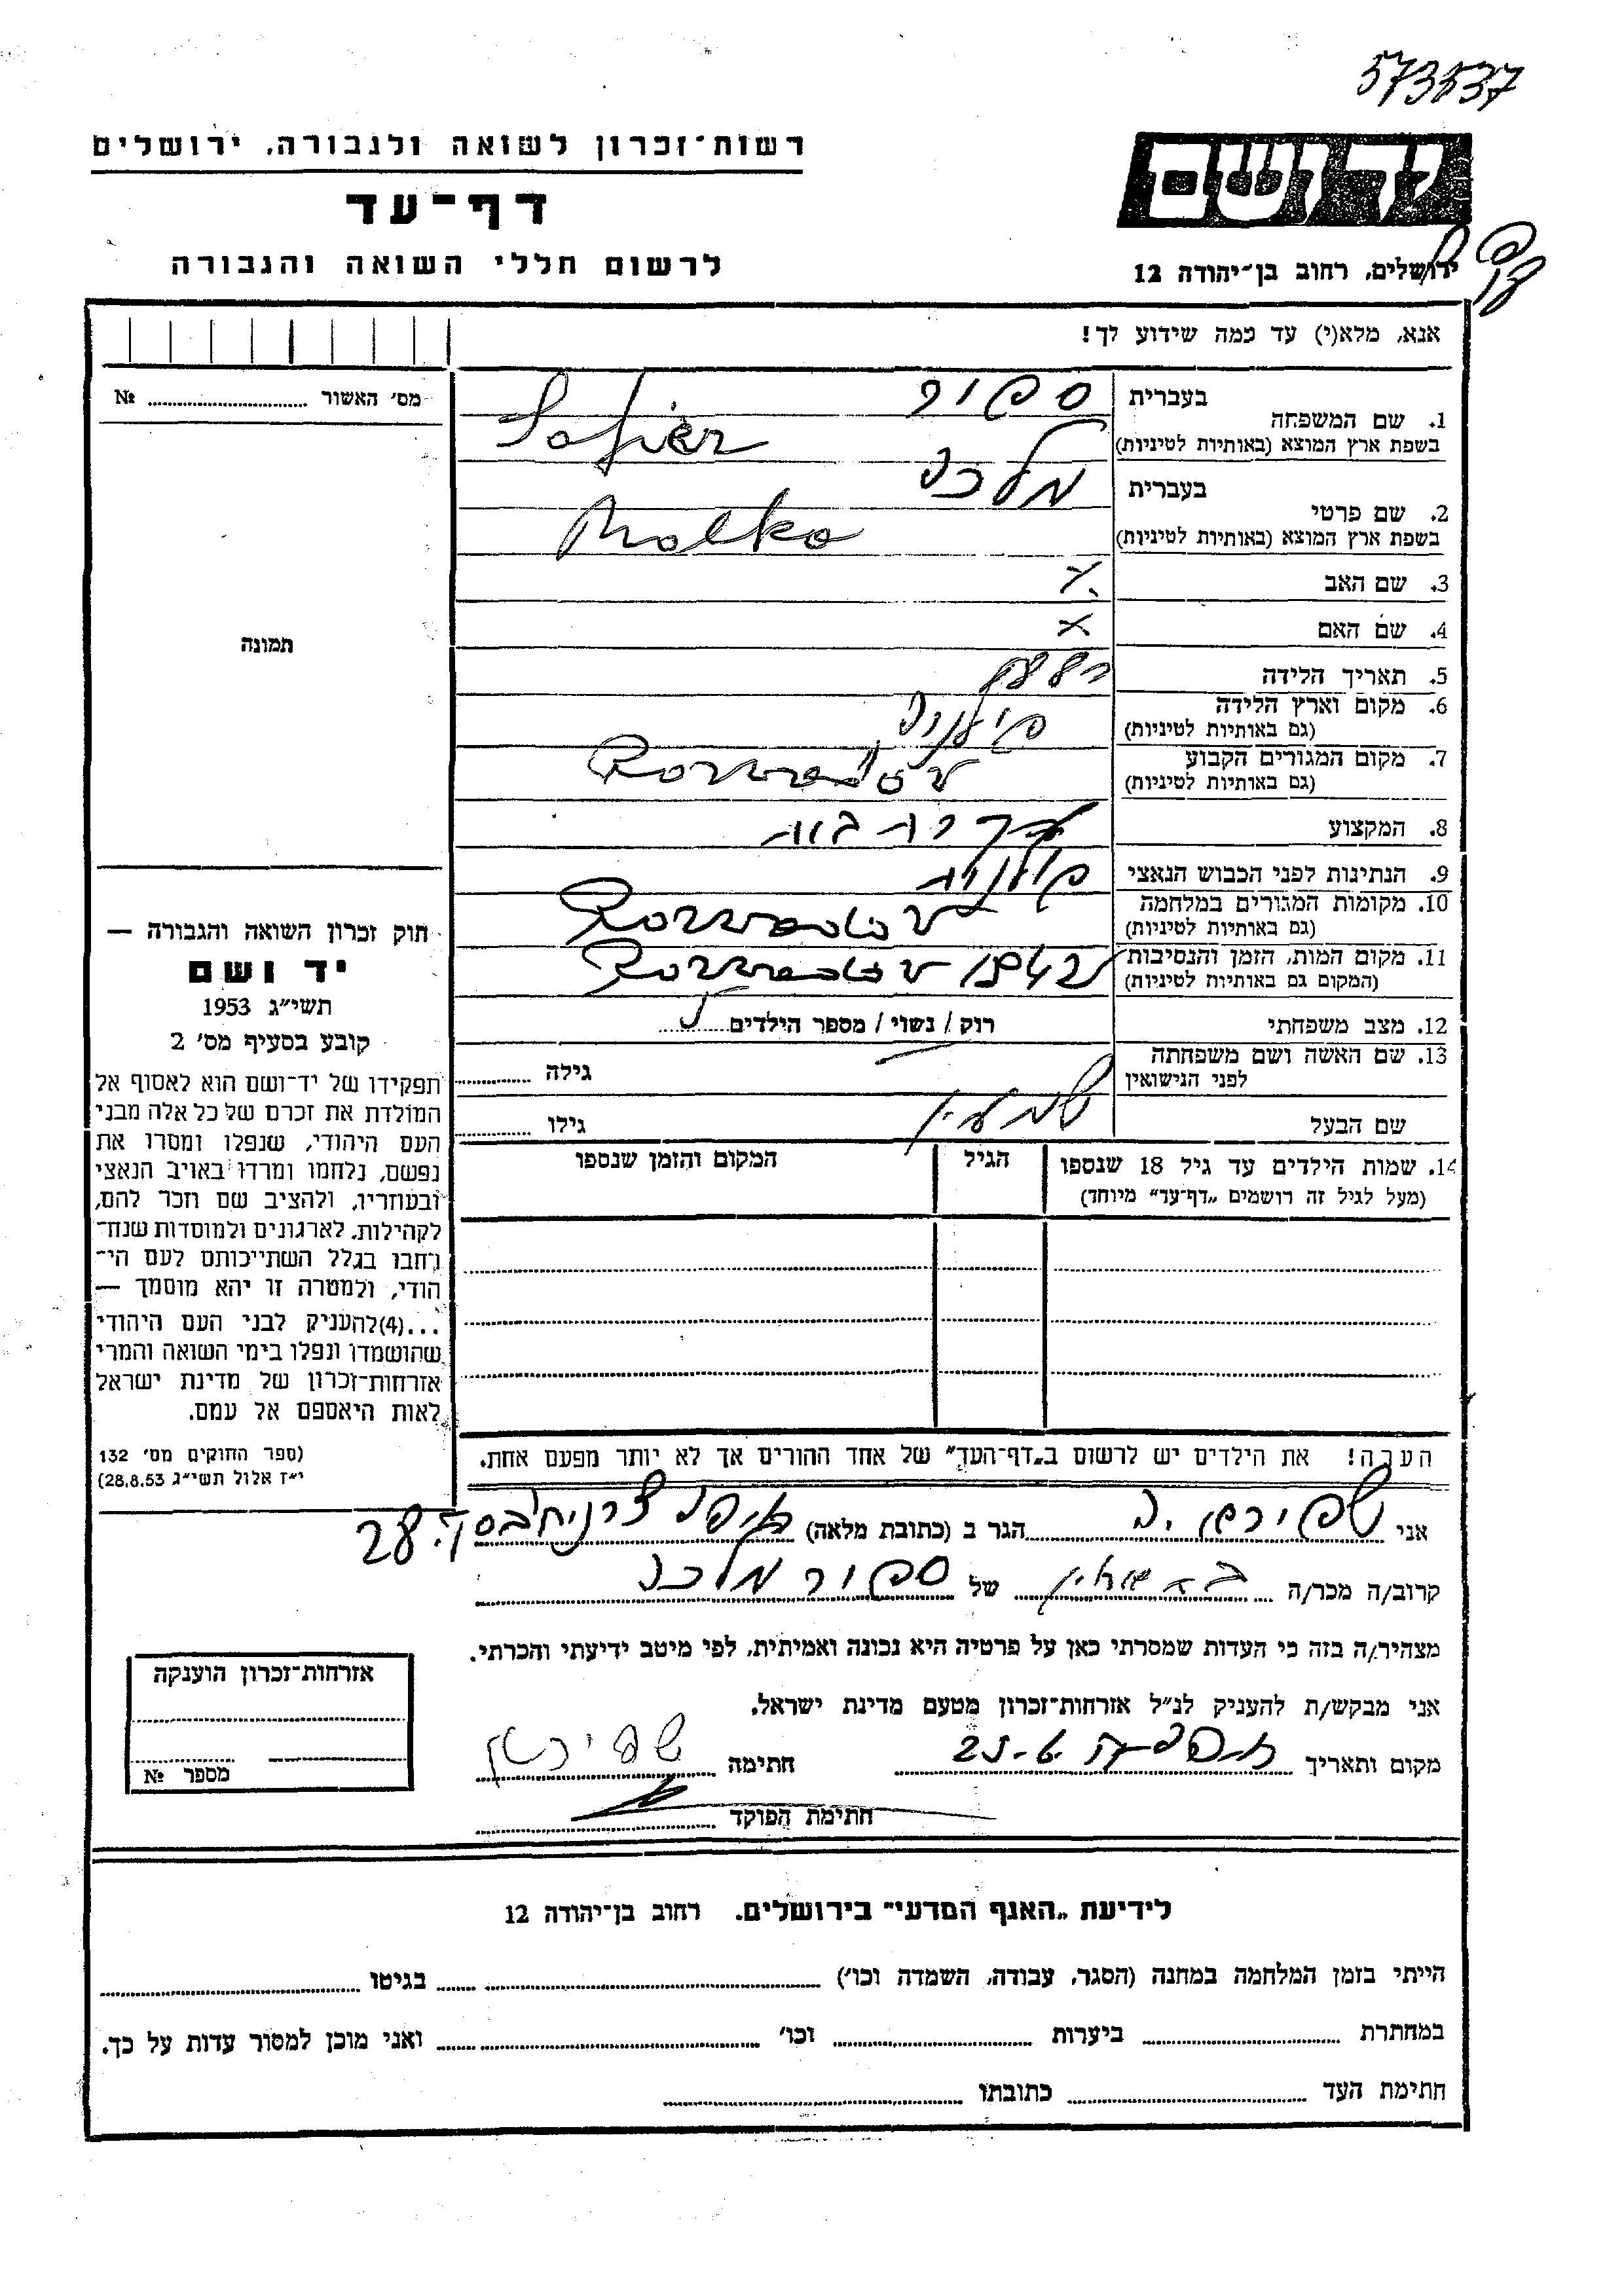 573537
רשות־זכרון לשואה ולגבורה, ירושלים
דף־עד
לרשום חללי השואה והגבורה
יד ושם
ירושלים, רחוב בן־יהודה 12
אנא, מלא(י) עד כמה שידוע לך!
מס' האשור № 
1. שם המשפחה
בעברית ספיר
בשפת ארץ המוצא (באותיות לטיניות) Safier
2. שם פרטי
בעברית מלכה
בשפת ארץ המוצא (באותיות לטיניות) Malka
3. שם האב
4. שם האם
5. תאריך הלידה
6. מקום וארץ הלידה
(גם באותיות לטיניות)
7. מקום המגורים הקבוע
(גם באותיות לטיניות) Rozwadów
8. המקצוע עקרת בית
9. הנתינות לפני הכבוש הנאצי פולנית
10. מקומות המגורים במלחמה
(גם באותיות לטיניות) Rozwadów
11. מקום המות, הזמן והנסיבות
(המקום גם באותיות לטיניות) Rozwadów
12. מצב משפחתי רוק / נשוי / מספר הילדים
13. שם האשה ושם משפחתה
לפני הנישואין גילה
שם הבעל שמעון גילו
14. שמות הילדים עד גיל 18 שנספו
(מעל לגיל זה רושמים „דף־עד" מיוחד)
הגיל
המקום והזמן שנספו
הערה! את הילדים יש לרשום ב„דף־העד" של אחד ההורים אך לא יותר מפעם אחת.
תמונה
חוק זכרון השואה והגבורה —
יד ושם
תשי״ג 1953
קובע בסעיף מס' 2
תפקידו של יד־ושם הוא לאסוף אל
המולדת את זכרם של כל אלה מבני
העם היהודי, שנפלו ומסרו את
נפשם, נלחמו ומרדו באויב הנאצי
ובעוזריו, ולהציב שם וזכר להם,
לקהילות, לארגונים ולמוסדות שנח־
רבו בגלל השתייכותם לעם הי־
הודי, ולמטרה זו יהא מוסמך —
...(4)להעניק לבני העם היהודי
שהושמדו ונפלו בימי השואה והמרי
אזרחות־זכרון של מדינת ישראל
לאות היאספם אל עמם.
(ספר החוקים מס' 132
י״ז אלול תשי״ג 28.8.53)
אני הגר ב (כתובת מלאה) חיפה
קרוב/ה מכר/ה של ספיר מלכה
מצהיר/ה בזה כי העדות שמסרתי כאן על פרטיה היא נכונה ואמיתית, לפי מיטב ידיעתי והכרתי.
אני מבקש/ת להעניק לנ״ל אזרחות־זכרון מטעם מדינת ישראל.
מקום ותאריך חתימה
חתימת הפוקד
אזרחות־זכרון הוענקה
מספר №
לידיעת „האגף המדעי" בירושלים. רחוב בן־יהודה 12
הייתי בזמן המלחמה במחנה (הסגר, עבודה, השמדה וכו') בגיטו
במחתרת ביערות וכו' ואני מוכן למסור עדות על כך.
חתימת העד כתובתו